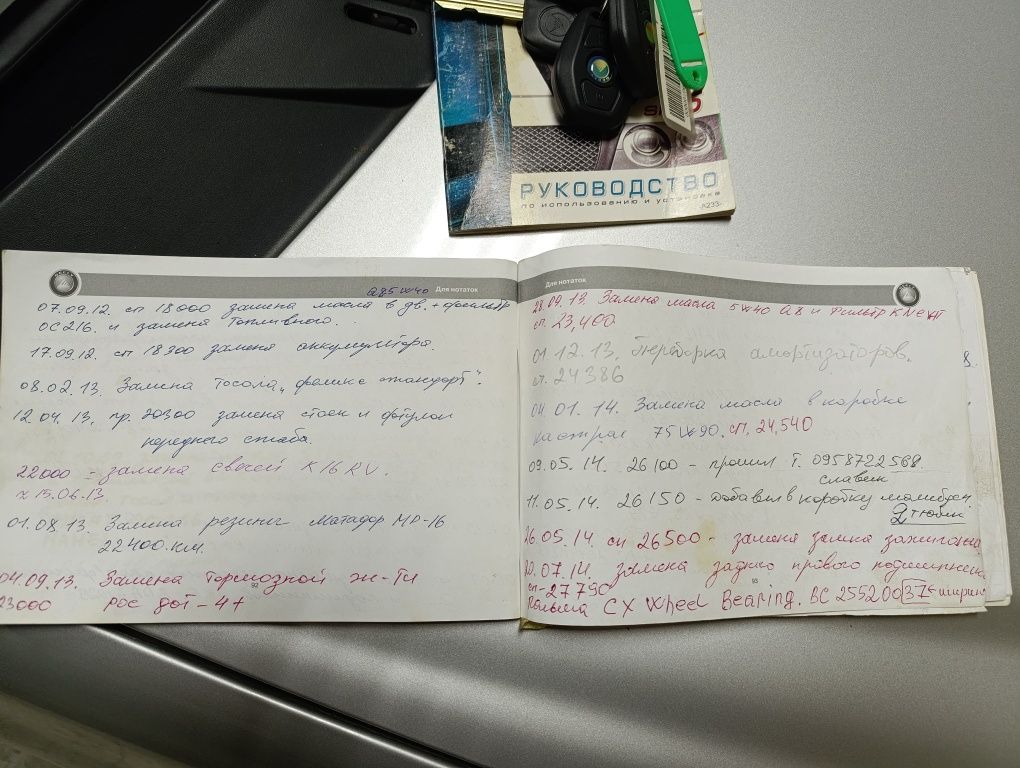 РУКОВОДСТВО
по использованию и установке
Для нотаток
Q8 5W40
07.09.12. сп 18000 замена масла в дв. + фильтр
ОС216. и замена топливного.
17.09.12. сп 18300 замена аккумулятора.
08.02.13. Замена тосола „феликс стандарт".
12.04.13. пр. 20300 замена стоек и втулок
переднего стаба.
22000 - замена свечей K16RU.
~ 15.06.13.
01.08.13. Замена резины Матадор МР-16
22400 км.
04.09.13. Замена тормозной ж-ти
23000 РОС ДОТ-4+
92
Для нотаток
28.09.13. Замена масла 5W40 Q8 и фильтр KNEXT
сп. 23,400
01.12.13. Переборка амортизаторов.
сп. 24386
04.01.14. Замена масла в коробке
кастрол 75W90. сп. 24,540
09.05.14. 26100 - прошил т. 0958722568
славик
11.05.14. 26150 - добавил в коробку
2 тюбик
26.05.14. сп 26500 - замена замка зажигания
20.07.14. замена заднего правого подшипника
сп-27790
93
Польша CX Wheel Bearing. ВС 25520037